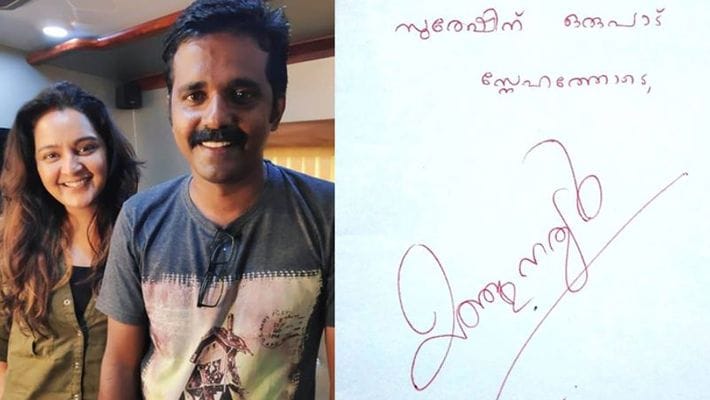 സുരേഷിന് ഒരുപാട്
സ്നേഹത്തോടെ,
മഞ്ജു വാര്യർ